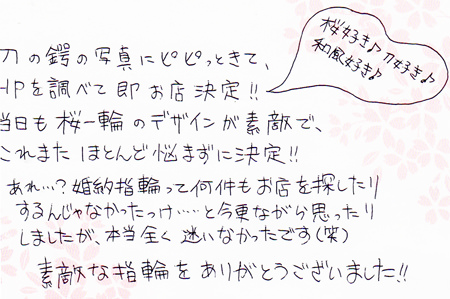 桜好き♪刀好き♪
和風好き♪
刀の鍔の写真にピピっときて、
HPを調べて即お店決定!!
当日も桜一輪のデザインが素敵で、
これまたほとんど悩まずに決定!!
あれ…?婚約指輪って何件もお店を探したり
するんじゃなかったっけ……と今更ながら思ったり
しましたが、本当全く迷いなかったです(笑)
素敵な指輪をありがとうございました!!